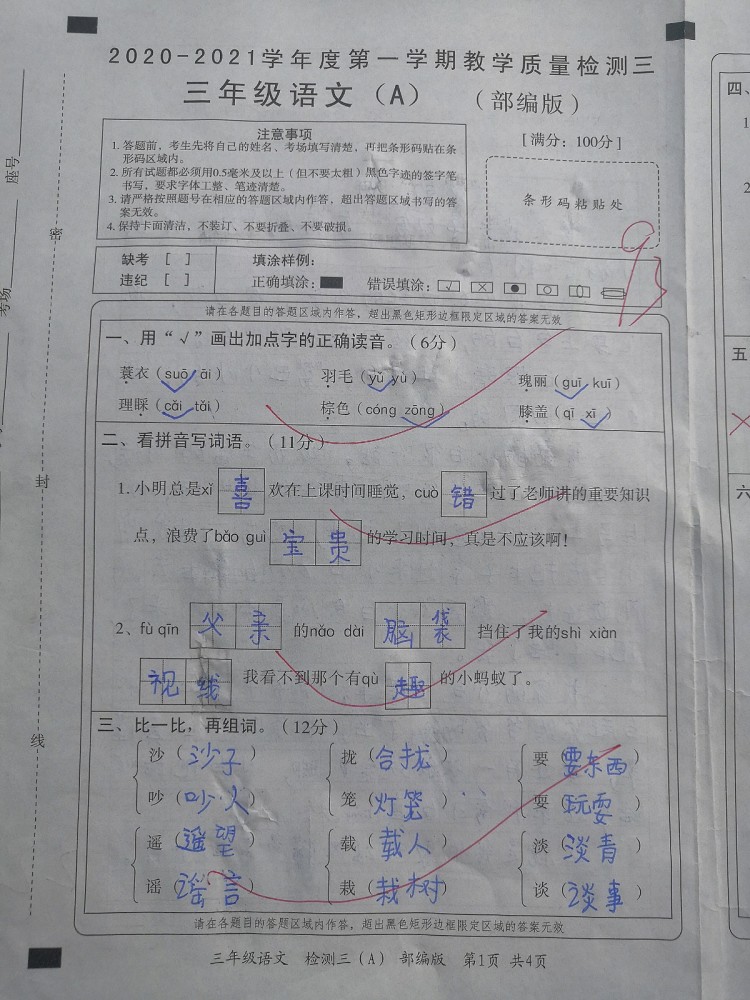 2020-2021学年度第一学期教学质量检测三
三年级语文（A） （部编版）
注意事项
1. 答题前，考生先将自己的姓名、考场填写清楚，再把条形码贴在条
形码区域内。
2. 所有试题都必须用0.5毫米及以上（但不要太粗）黑色字迹的签字笔
书写，要求字体工整、笔迹清楚。
3. 请严格按照题号在相应的答题区域内作答，超出答题区域书写的答
案无效。
4. 保持卡面清洁，不装订、不要折叠、不要破损。
[满分：100分]
条形码粘贴处
93
缺考 [ ] 填涂样例：
违纪 [ ] 正确填涂： 错误填涂：
请在各题目的答题区域内作答，超出黑色矩形边框限定区域的答案无效
一、用“√”画出加点字的正确读音。（6分）
蓑衣（suō āi） 羽毛（yǔ yù） 瑰丽（guī kuī）
理睬（cǎi tǎi） 棕色（cóng zōng） 膝盖（qī xī）
二、看拼音写词语。（11分）
1. 小明总是xǐ 喜 欢在上课时间睡觉，cuò 错 过了老师讲的重要知识
点，浪费了bǎo guì 宝贵 的学习时间，真是不应该啊！
2、fù qīn 父亲 的nǎo dài 脑袋 挡住了我的shì xiàn
视线 我看不到那个有qù 趣 的小蚂蚁了。
三、比一比，再组词。（12分）
沙（沙子） 拢（合拢） 要（要东西）
吵（吵人） 笼（灯笼） 耍（玩耍）
遥（遥望） 载（载人） 淡（淡青）
谣（谣言） 栽（栽树） 谈（谈事）
请在各题目的答题区域内作答，超出黑色矩形边框限定区域的答案无效
三年级语文 检测三（A） 部编版 第1页 共4页
座号
考场
密
封
线
四、
1
2
五
六